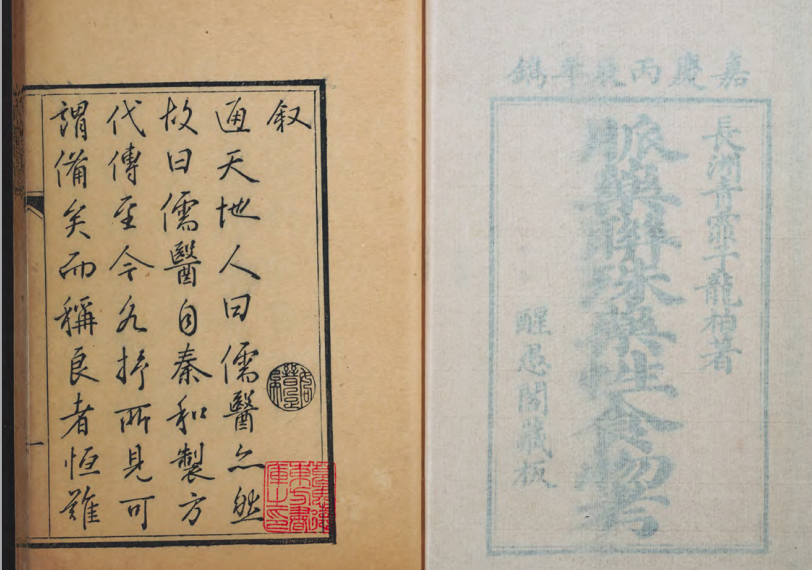 嘉慶丙辰鐫
長洲青霏子龍柏著
脈藥聯珠藥性食物考
醒愚閣藏板
叙
通天地人曰儒醫亦然
故曰儒醫自秦和製方
代傳至今各抒所見可
謂備矣而稱良者恒難